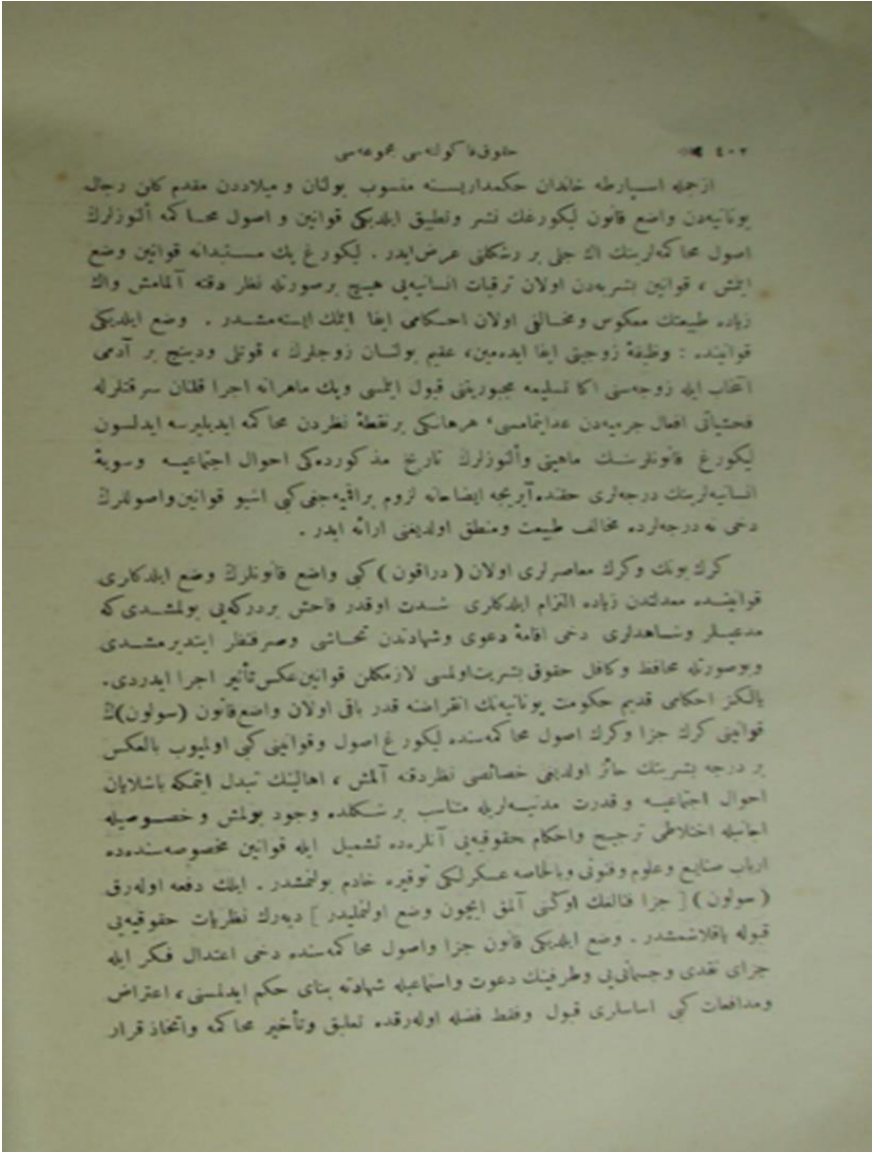 ٤٠٢ حقوق فاكولته‌سی مجموعه‌سی
ازجمله اسپارطه خاندان حكمداریسنه منسوب بولنان و میلاددن مقدم كلن رجال
یونانیه‌دن واضع قانون لیكورغك نشر وتطبیق ایلدیكی قوانین و اصول محاكمه
اصول محاكمه‌لرینك اك جلی بر رشكلنی عرض ایدر . لیكورغ پك مستبدانه قوانین وضع
ایتمش ، قوانین بشریه‌دن اولان ترقیات انسانیه‌یی هیچ برصورتله نظر دقته آلمامش واك
زیاده طبیعتك معكوس ومخالفی اولان احكامی ایفا ایتمك ایسته‌مشدر . وضع ایلدیكی
قوانینده : وظیفهٔ زوجیتی ایفا ایده‌مین، عقیم بولنان زوجلرك ، قوتلی ودینج بر آدمی
انتخاب ایله زوجه‌سنی اكا تسلیمه مجبوریتنی قبول ایتمسی وپك ماهرانه اجرا قلنان سرقتلرله
فحشیاتی افعال جرمیه‌دن عدایتمامسی، هرهانكی برنقطهٔ نظردن محاكمه ایدیلیرسه ایدلسون
لیكورغ قانونلرینك ماهیتی تاریخ مذكورده‌كی احوال اجتماعیه وسویهٔ
انسانیه‌لرینك درجه‌لری حقنده آیریجه ایضاحاته لزوم براقمیه‌جغی كبی اشبو قوانین واصوللرك
دخی نه درجه‌لرده مخالف طبیعت ومنطق اولدیغنی ارائه ایدر .
كرك بونك وكرك معاصرلری اولان ( دراقون ) كبی واضع قانونلرك وضع ایلدكلری
قوانینده معدلتدن زیاده التزام ایلدكلری شدت اوقدر فاحش بردركه‌یی بولمشدی كه
مدعیلر وشاهدلری دخی اقامهٔ دعوی وشهادتدن تحاشی وصرفنظر ایتدیرمشدی
وبوصورتله محافظ وكافل حقوق بشریت اولمسی لازمكلن قوانین عكس تأثیر اجرا ایدردی.
یالكز احكامی قدیم حكومت یونانیه‌نك انقراضنه قدر باقی اولان واضع قانون (سولون)ك
قوانینی كرك جزا وكرك اصول محاكمه‌سنده لیكورغ اصول وقوانینی كبی اولمیوب بالعكس
بر درجه بشریتك حائز اولدیغی خصائصی نظردقته آلمش ، اهالینك تبدل ایتمكه باشلایان
احوال اجتماعیه و قدرت مدنیه‌لریله متناسب برشكلده وجود بولمش و خصوصیله
اجانبله اختلاطی ترجیح واحكام حقوقیه‌یی آنلره‌ده تشمیل ایله قوانین مخصوصه‌سنده‌ده
ارباب صنایع وعلوم وفنونی وبالخاصه عسكرلكی توقیره خادم بولنمشدر . ایلك دفعه اوله‌رق
( سولون ) [ جزا فنالغك اوكنی آلمق ایچون وضع اولنملیدر ] دیه‌رك نظریات حقوقیه‌یی
قبوله یاقلاشمشدر . وضع ایلدیكی قانون جزا واصول محاكمه‌سنده دخی اعتدال فكر ایله
جزای نقدی وجسمانی‌یی وطرفینك دعوت واستماعیله شهادته بنای حكم ایدلمسنی، اعتراض
ومدافعات كبی اساسلری قبول وفقط فضله اوله‌رقده تعلیق وتأخیر محاكمه واتخاذ قرار